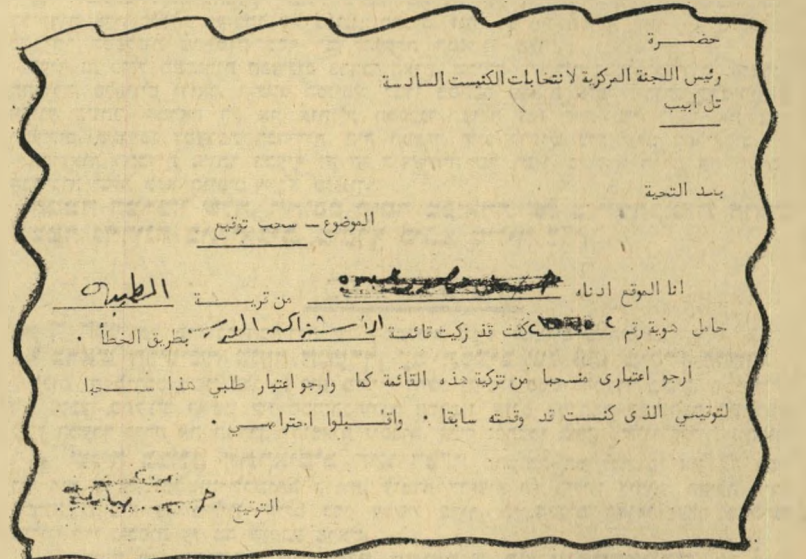 حضــرة
رئيس اللجنة المركزية لانتخابات الكنيست السادسة
تل ابيب
بعد التحية
الموضوع – سحب توقيع
انا الموقع ادناه من قريــة الطيبة
حامل هوية رقم كنت قد زكيت قائمة الاشتراكيين بطريق الخطأ .
ارجو اعتبارى منسحبا من تزكية هذه القائمة كما وارجو اعتبار طلبي هذا سـحبا
لتوقيعي الذى كنـت قد وقعته سابقا . واقـبلوا احترامـي .
التوقيع